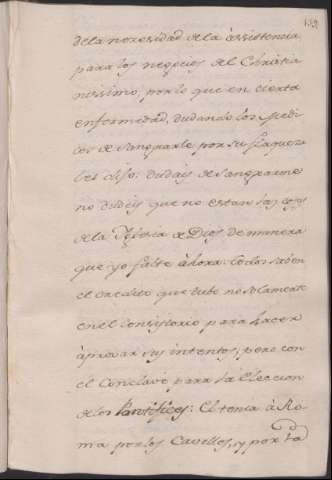 de la necesidad de la àssistencia
para los negocios del Christia
nissimo, por lo que en cierta
enfermedad, dudando los Medi
cos de sangrarle por su flaqueza
les dijo: dudais de sangrarme
no dudeis que no estan las cosas
de la Iglesia de Dios de manera
que yo falte àhora: todos saben
el credito que tubo no solamente
en el Consistorio para hacer
àprovar sus intentos, pero con
el Conclave para la Eleccion
de los Pontifices: El tenia à Ro
ma por los Cavellos, y por la